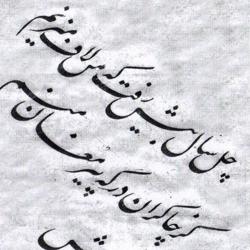 چل سال بیش رفت که من لاف میزنم
کز چاکران درگه پیر مغان منم